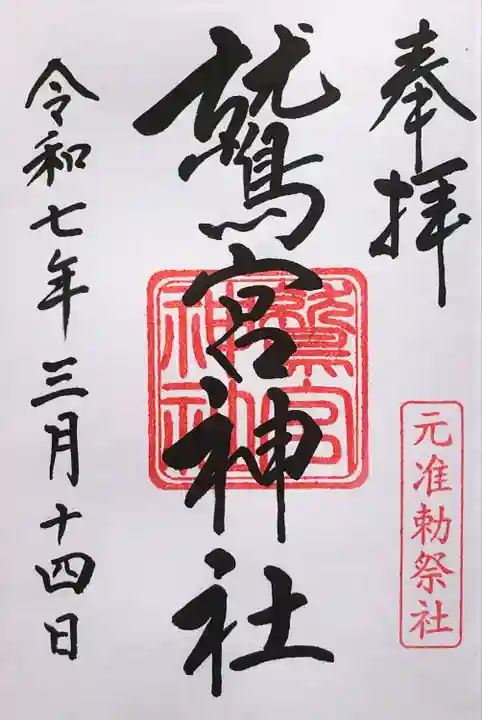 奉拝
元准勅祭社
鷲宮神社
鷲宮
神社
令和七年三月十四日